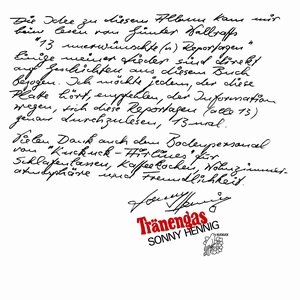 Die Idee zu diesem Album kam mir
beim Lesen von Günter Wallraffs
"13 unerwünschte(n) Reportagen"
Einige meiner Lieder sind direkt
auf Geschichten aus diesem Buch
bezogen. Ich möchte jedem, der diese
Platte hört, empfehlen, der Information
wegen, sich diese Reportagen (alle 13)
genau durchzulesen, 13 mal.
Vielen Dank auch dem Bodenpersonal
von "Kuckuck-Airlines" für
Schlafenlassen, Kaffeekochen, Wohnzimmer-
atmosphäre und Freundlichkeit.
Sonny Hennig
Tränengas
SONNY HENNIG